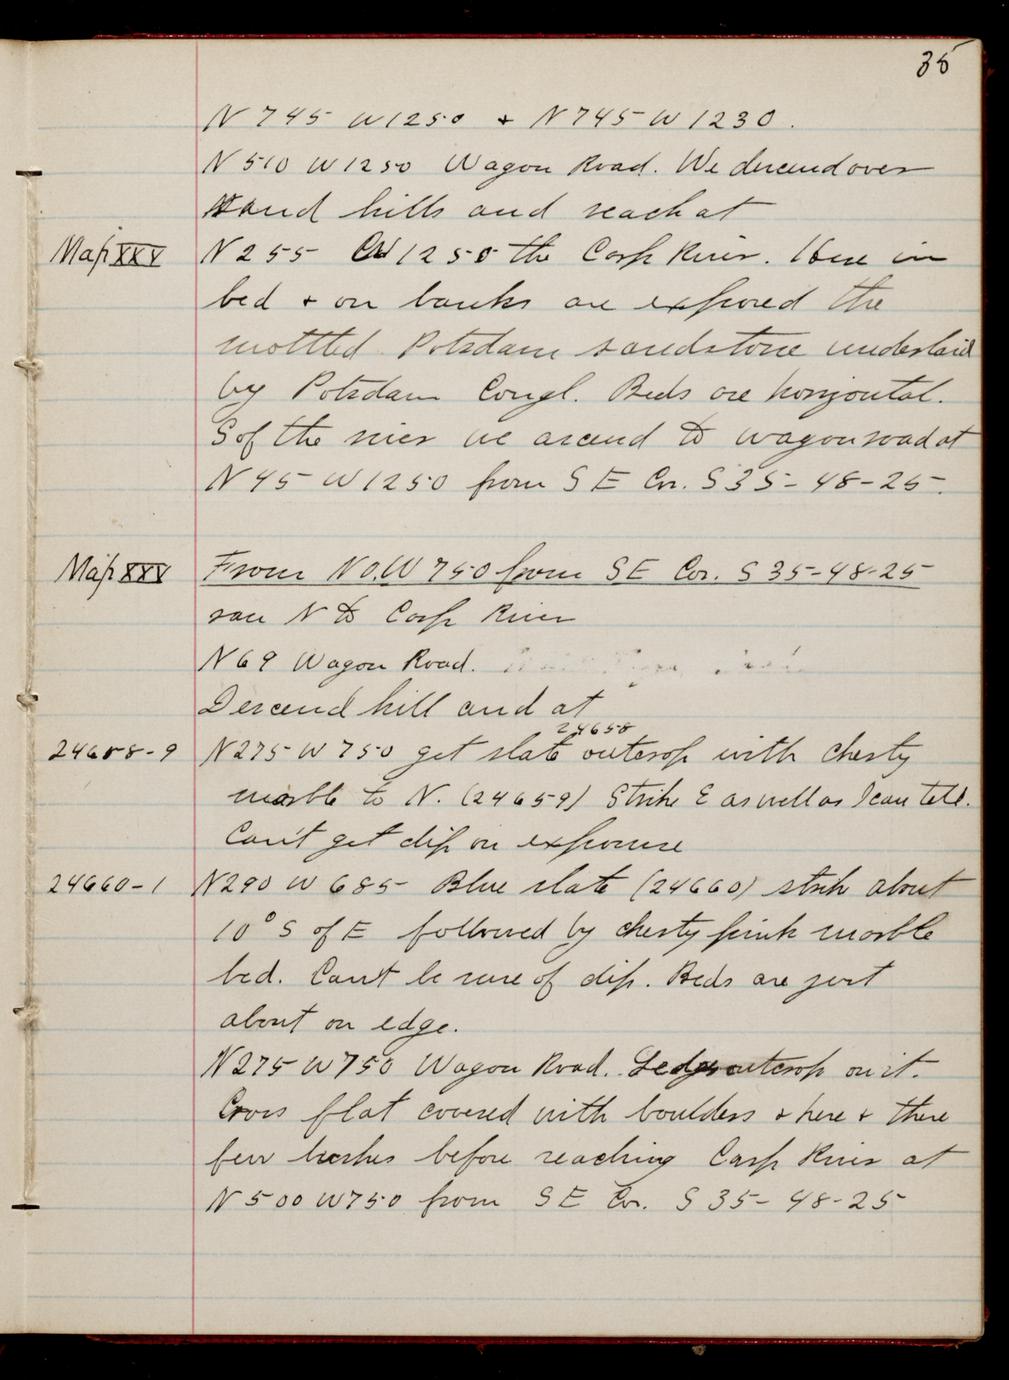 35
N 745 W 1250 + N 745 W 1230.
N 510 W 1250 Wagon Road. We descend over
sand hills and reach at
Map XXV N 255 W 1250 the Carp River. Here in
bed + on banks are exposed the
mottled Potsdam sandstone underlaid
by Potsdam Congl. Beds are horizontal.
S of the river we ascend to wagon road at
N 45 W 1250 from S E Cor. S 35-48-25.
Map XXV From N 0. W 750 from S E Cor. S 35-48-25
ran N to Carp River
N 69 Wagon Road.
Descend hill and at
24658
24658-9 N 275 W 750 get slate outcrop with cherty
marble to N. (24659) Strike E as well as I can tell.
Can't get dip on exposure
24660-1 N 290 W 685 Blue slate (24660) strike about
10° S of E followed by cherty pink marble
bed. Can't be sure of dip. Beds are just
about on edge.
N 275 W 750 Wagon Road. Ledge outcrop on it.
Cross flat covered with boulders + here + there
few bushes before reaching Carp River at
N 500 W 750 from S E Cor. S 35-48-25